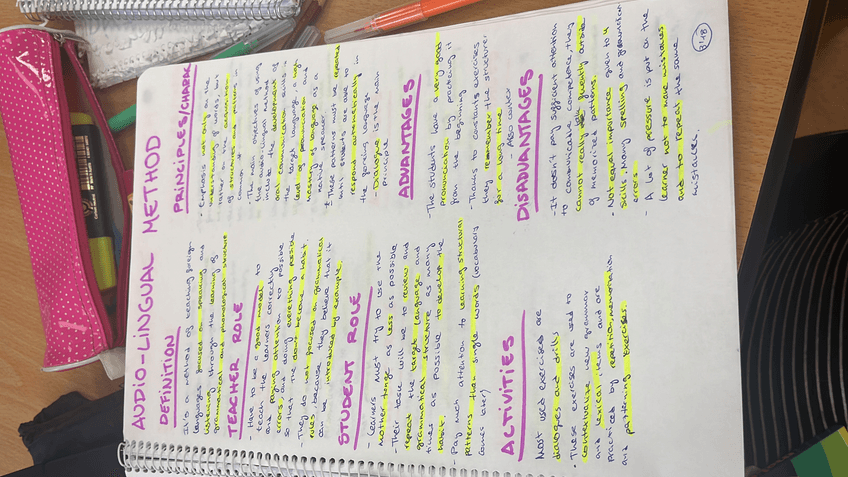 AUDIO-LINGUAL METHOD
DEFINITION
It's a method of teaching foreign
languages focused on speaking and
listening through the learning of
grammatical and phonological structure
TEACHER ROLE
- Have to be a good model to
teach the learners correctly
and paying attention to possible
errors, and doing everything possible
so that the don't become a habit.
- They do not focused on grammatical
rules because they believe that it
can be introduced by example.
STUDENT ROLE
- Learners must try to use the
mother tonge as less as possible
- Their task will be to review and
repeat the target language and
grammatical structure as many
times as possible to develop the
habit.
- Pay much attention to learning structural
patterns then single words (vocabulary
comes later)
ACTIVITIES
Most used exercises are
dialogues and drills
- These exercises are used to
contextualise new grammar
and lexical items and are
practiced by repetition, memorisation
and patterning exercises.
PRINCIPLES/CHARAC
- Emphasis not only on the
understanding of words, but
rather on the acquisition
of structures and patterns in
common
- The main objectives of using
the audio-lingual method
include the development of
oral communication skills in
the target language, a high
level of pronunciation and
mastery of language as a
native speaker.
- These patterns must be repeated
until students are able to
respond automatically in
the foreing language
- Dialogue is the main
principle
ADVANTAGES
- The students have a very good
pronunciation by practicing it
from the beginning
- Thanks to constants exercises
they remember the structures
for a long time.
- Also context
DISADVANTAGES
- It doesn't pay sufficient attention
to communicative competence, they
cannot really be fluently aside
of memorized patterns.
- Not equal importance given to 4
skills, many spelling and grammatical
errors.
- A lot of pressure is put on the
learner not to make mistakes
and to repeat the same
mistakes.